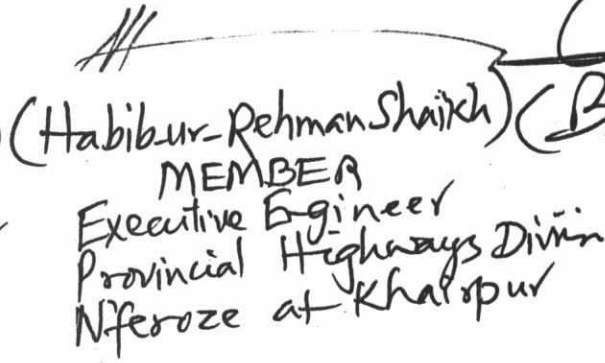 (Habib-ur-Rehman Shaikh) (B
MEMBER
Executive Engineer
Provincial Highways Divisin
N'feroze at Khairpur